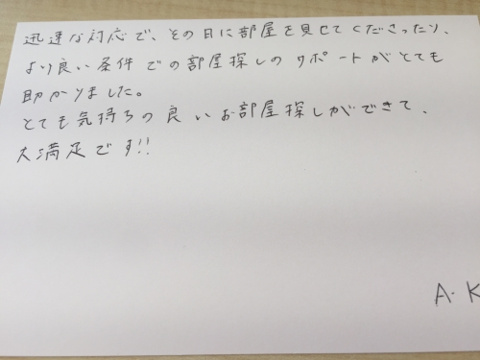 迅速な対応で、その日に部屋を見せてくださったり、
より良い条件での部屋探しのサポートがとても
助かりました。
とても気持ちの良いお部屋探しができて、
大満足です!!
A.K